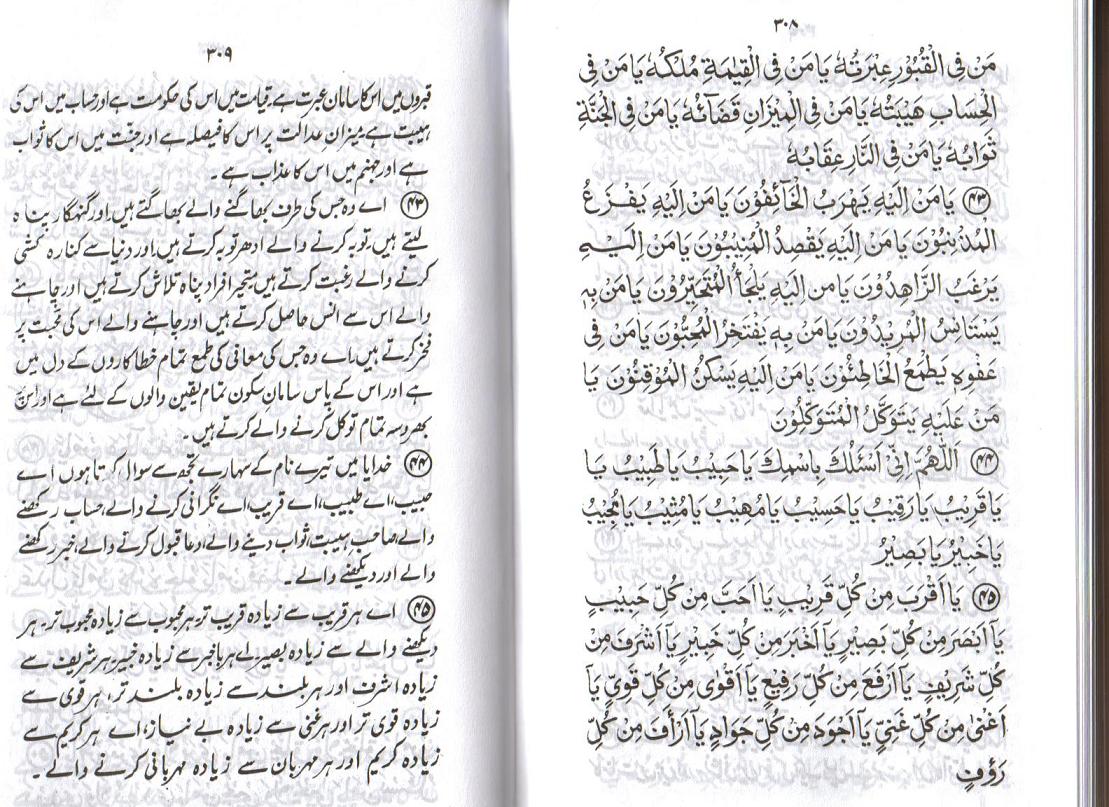 ۳۰۸
مَنْ فِی الْقُبُوْرِ عِبْرَتُہٗ یَا مَنْ فِی الْقِیٰمَۃِ مُلْکُہٗ یَا مَنْ فِی
الْحِسَابِ ھَیْبَتُہٗ یَا مَنْ فِی الْمِیْزَانِ قَضَآئُہٗ یَا مَنْ فِی الْجَنَّۃِ
ثَوَابُہٗ یَا مَنْ فِی النَّارِ عِقَابُہٗ
۴۳ یَا مَنْ اِلَیْہِ یَھْرَبُ الْخَآئِفُوْنَ یَا مَنْ اِلَیْہِ یَفْزَعُ
الْمُذْنِبُوْنَ یَا مَنْ اِلَیْہِ یَقْصِدُ الْمُنِیْبُوْنَ یَا مَنْ اِلَیْہِ
یَرْغَبُ الزَّاھِدُوْنَ یَا مَنْ اِلَیْہِ یَلْجَأُ الْمُتَحَیِّرُوْنَ یَا مَنْ بِہٖ
یَسْتَانِسُ الْمُرِیْدُوْنَ یَا مَنْ بِہٖ یَفْتَخِرُ الْمُحِبُّوْنَ یَا مَنْ فِی
عَفْوِہٖ یَطْمَعُ الْخَاطِئُوْنَ یَا مَنْ اِلَیْہِ یَسْکُنُ الْمُوْقِنُوْنَ یَا
مَنْ عَلَیْہِ یَتَوَکَّلُ الْمُتَوَکِّلُوْنَ
۴۴ اَللّٰھُمَّ اِنِّیْ اَسْئَلُکَ بِاسْمِکَ یَا حَبِیْبُ یَا طَبِیْبُ یَا
یَا قَرِیْبُ یَا رَقِیْبُ یَا حَسِیْبُ یَا مُھِیْبُ یَا مُثِیْبُ یَا مُجِیْبُ
یَا خَبِیْرُ یَا بَصِیْرُ
۴۵ یَا اَقْرَبَ مِنْ کُلِّ قَرِیْبٍ یَا اَحَبَّ مِنْ کُلِّ حَبِیْبٍ
یَآ اَبْصَرَ مِنْ کُلِّ بَصِیْرٍ یَآ اَخْبَرَ مِنْ کُلِّ خَبِیْرٍ یَآ اَشْرَفَ مِنْ
کُلِّ شَرِیْفٍ یَآ اَرْفَعَ مِنْ کُلِّ رَفِیْعٍ یَآ اَقْوٰی مِنْ کُلِّ قَوِیٍّ یَآ
اَغْنٰی مِنْ کُلِّ غَنِیٍّ یَآ اَجْوَدَ مِنْ کُلِّ جَوَادٍ یَآ اَرْأَفَ مِنْ کُلِّ
رَؤُفٍ
۳۰۹
قبروں میں اس کا سامان عبرت ہے۔ قیامت میں اس کی حکومت ہے اور حساب میں اس کی
ہیبت ہے میزان عدالت پر اس کا فیصلہ ہے اور جنّت میں اس کا ثواب
ہے اور جہنم میں اس کا عذاب ہے۔
۴۳ اے وہ جس کی طرف بھاگنے والے بھاگتے ہیں اور گنہگار پناہ
لیتے ہیں، توبہ کرنے والے ادھر توبہ کرتے ہیں، اور دنیا سے کنارہ کشی
کرنے والے رغبت کرتے ہیں متحیر افراد پناہ تلاش کرتے ہیں اور چاہنے
والے اس سے انس حاصل کرتے ہیں اور چاہنے والے اس کی محبت پر
فخر کرتے ہیں، اے وہ جس کی معافی کی طمع تمام خطاکاروں کے دل میں
ہے اور اس کے پاس سامان سکون تمام یقین والوں کے لئے ہے اور اس پر
بھروسہ تمام توکل کرنے والے کرتے ہیں۔
۴۴ خدایا میں تیرے نام کے سہارے تجھ سے سوال کرتا ہوں اے
حبیب، اے طبیب، اے قریب، اے نگرانی کرنے والے، حساب رکھنے
والے، صاحب ہیبت، ثواب دینے والے، دعا قبول کرنے والے، خبر رکھنے
والے اور دیکھنے والے۔
۴۵ اے ہر قریب سے زیادہ قریب تر، ہر محبوب سے زیادہ محبوب تر، ہر
دیکھنے والے سے زیادہ بصیر، اے ہر باخبر سے زیادہ خبیر، ہر شریف سے
زیادہ اشرف اور ہر بلند سے زیادہ بلند تر، ہر قوی سے
زیادہ قوی تر اور ہر غنی سے زیادہ بے نیاز، اے ہر کریم سے
زیادہ کریم اور ہر مہربان سے زیادہ مہربانی کرنے والے۔